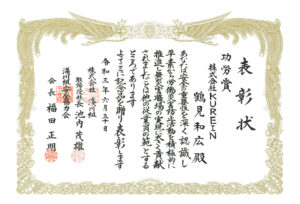 表彰状
功労賞
株式会社KUREIN
鶴見和広殿
あなたは安全の重要性を深く認識し
平素から労働災害防止活動を積極的に
推進し無災害職場の実現に大きく貢献
されましたことは他の従業員の範とする
ところであります
よってここに記念品を贈り表彰します
令和三年六月三十日
株式会社 淺川組
取締役社長 池内茂雄
淺川組安全衛生協力会
会長 福田正明